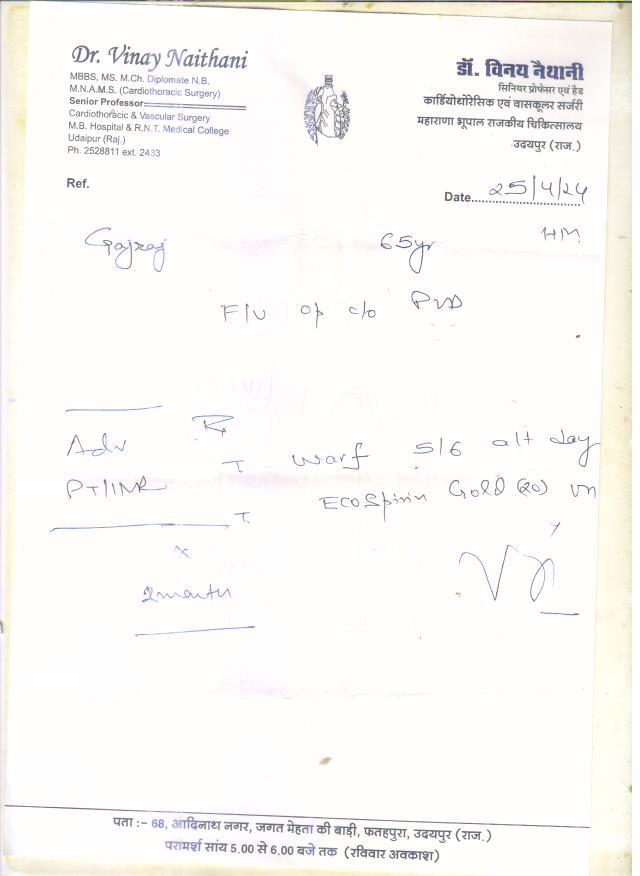 Dr. Vinay Naithani
MBBS, MS. M.Ch. Diplomate N.B.
M.N.A.M.S. (Cardiothoracic Surgery)
Senior Professor
Cardiothoracic & Vascular Surgery
M.B. Hospital & R.N.T. Medical College
Udaipur (Raj.)
Ph. 2528811 ext. 2433
डॉ. विनय नैथानी
सिनियर प्रोफेसर एवं हैड
कार्डियोथोरेसिक एवं वासकूलर सर्जरी
महाराणा भूपाल राजकीय चिकित्सालय
उदयपुर (राज.)
Ref.
Date 25/4/24
Gajraj 65yr HM
F/U op c/o PVD
Adv
PT/INR
T warf 5/6 alt day
T. ECOSpirin Gold (20)
x
2 months
पता :- 68, आदिनाथ नगर, जगत मेहता की बाड़ी, फतहपुरा, उदयपुर (राज.)
परामर्श सांय 5.00 से 6.00 बजे तक (रविवार अवकाश)